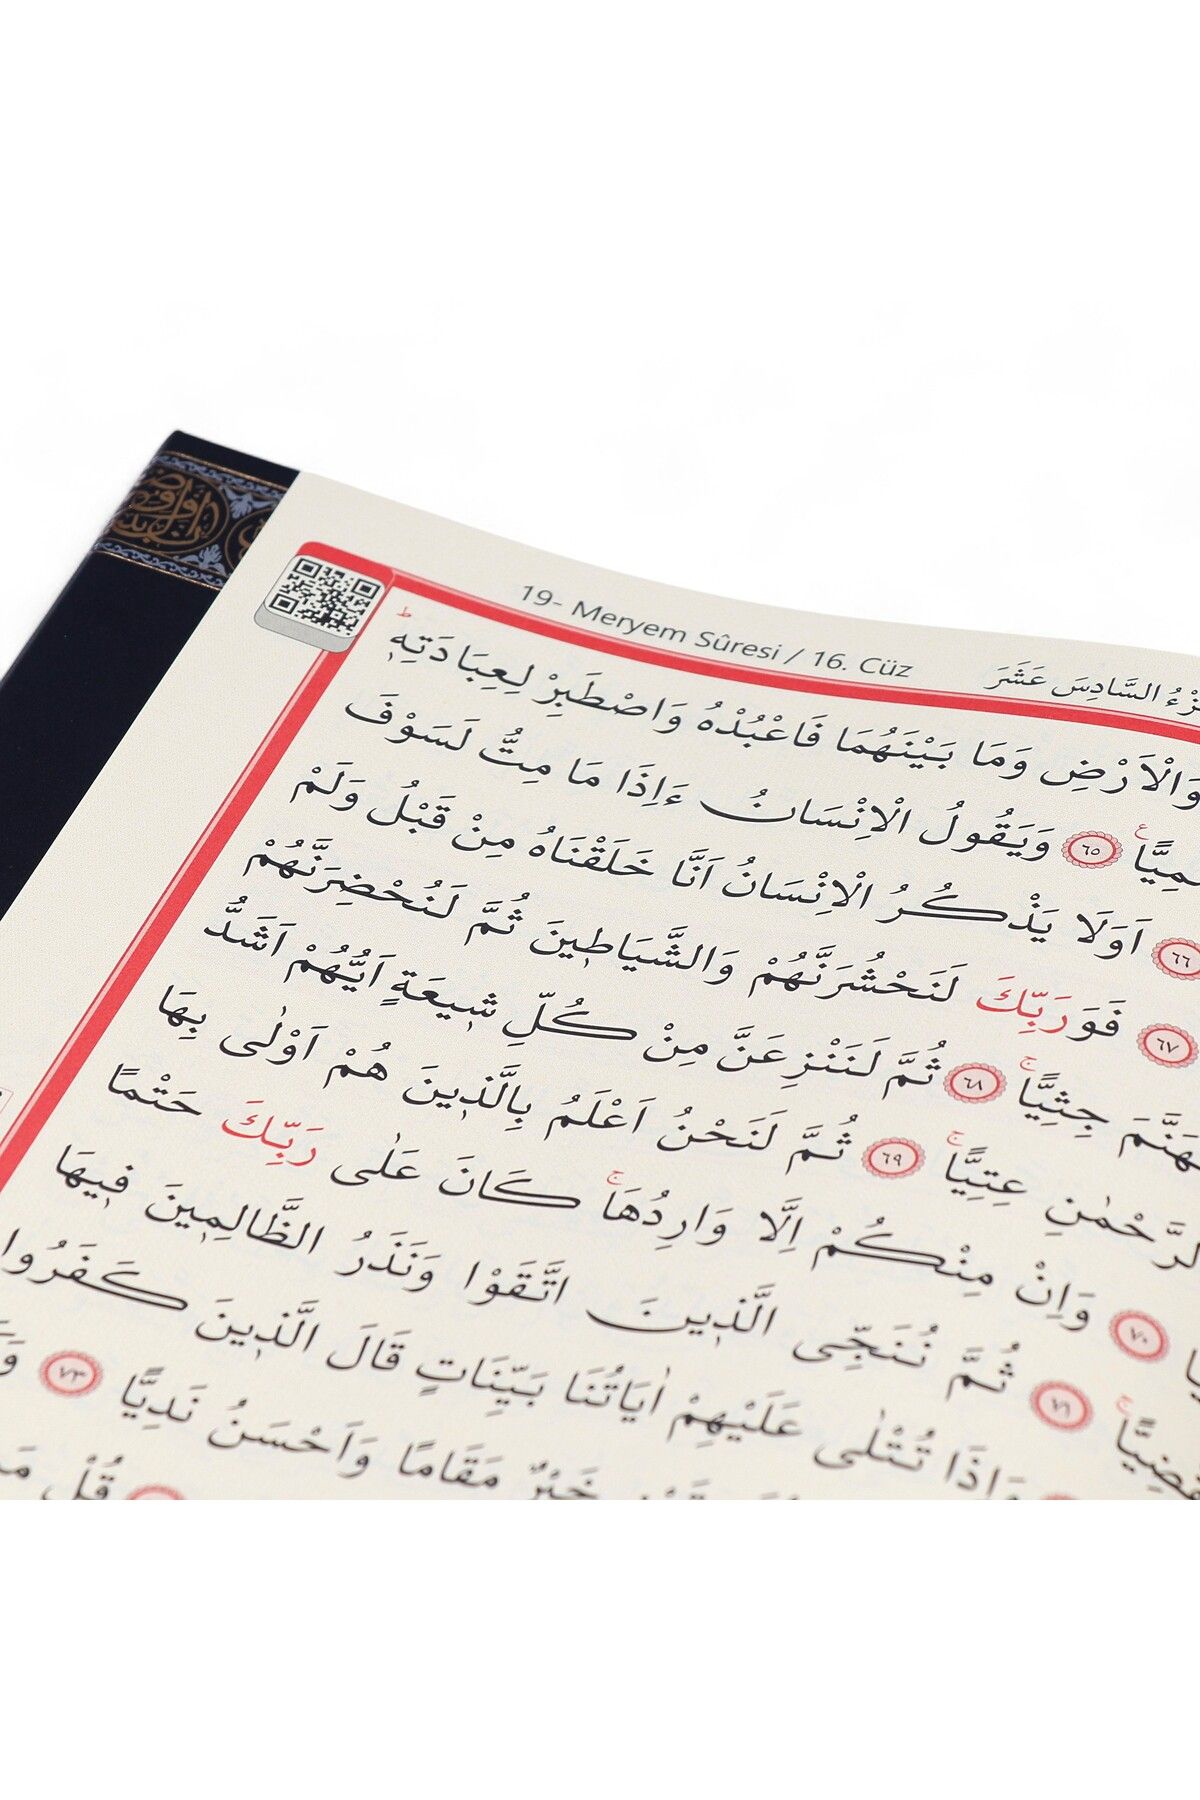 19- Meryem Sûresi / 16. Cüz
السَّادِسَ عَشَرَ
وَالْاَرْضِ وَمَا بَيْنَهُمَا فَاعْبُدْهُ وَاصْطَبِرْ لِعِبَادَتِه۪ۜ
٦٥ وَيَقُولُ الْاِنْسَانُ ءَاِذَا مَا مِتُّ لَسَوْفَ
٦٦ اَوَلَا يَذْكُرُ الْاِنْسَانُ اَنَّا خَلَقْنَاهُ مِنْ قَبْلُ وَلَمْ
٦٧ فَوَرَبِّكَ لَنَحْشُرَنَّهُمْ وَالشَّيَاط۪ينَ ثُمَّ لَنُحْضِرَنَّهُمْ
جِثِيًّاۚ ٦٨ ثُمَّ لَنَنْزِعَنَّ مِنْ كُلِّ ش۪يعَةٍ اَيُّهُمْ اَشَدُّ
الرَّحْمٰنِ عِتِيًّاۚ ٦٩ ثُمَّ لَنَحْنُ اَعْلَمُ بِالَّذ۪ينَ هُمْ اَوْلٰى بِهَا
٧٠ وَاِنْ مِنْكُمْ اِلَّا وَارِدُهَاۚ كَانَ عَلٰى رَبِّكَ حَتْمًا
٧١ ثُمَّ نُنَجِّى الَّذ۪ينَ اتَّقَوْا وَنَذَرُ الظَّالِم۪ينَ ف۪يهَا
وَاِذَا تُتْلٰى عَلَيْهِمْ اٰيَاتُنَا بَيِّنَاتٍ قَالَ الَّذ۪ينَ كَفَرُوا
خَيْرٌ مَقَامًا وَاَحْسَنُ نَدِيًّا ٧٣
قُلْ